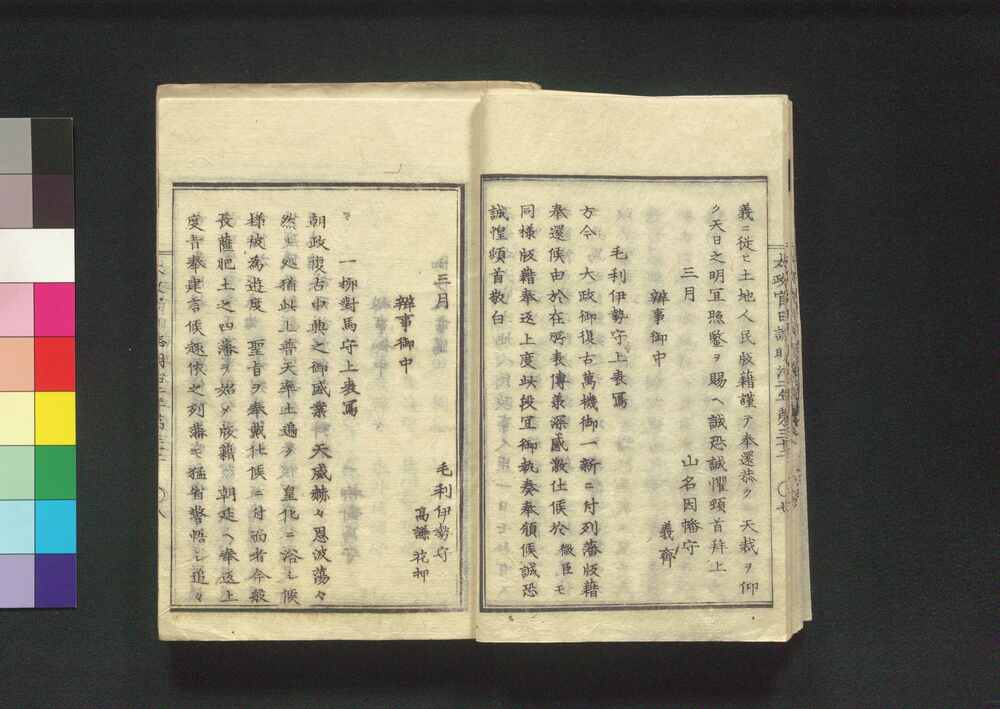 義ニ従ヒ土地人民版籍謹テ奉還恭ク 天裁ヲ仰
ク天日之明冝照鑒ヲ賜ヘ誠恐誠懼頓首拜上
三月 山名因幡守
義齊
辨事御中
毛利伊勢守上表冩
方今 大政御復古萬機御一新ニ付列藩版籍
奉還候由於在所表傳承深感激仕候於 微臣モ
同様版籍奉返上度此段冝御執奏奉頼候誠恐
誠惶頓首敬白
三月 毛利伊勢守
高謙 花押
辨事御中
一栁對馬守上表冩
朝政復古中興之御盛業 天威赫々恩波蕩々
然 處猶此上普天率土遍ク 皇化ニ浴シ候
様被為遊度 聖旨ヲ奉戴仕候ニ付而者今般
長薩肥土之四藩ヲ始メ版籍 朝廷ヘ奉返上
度旨奉建言候趣依之列藩モ猛省警悟シ追々